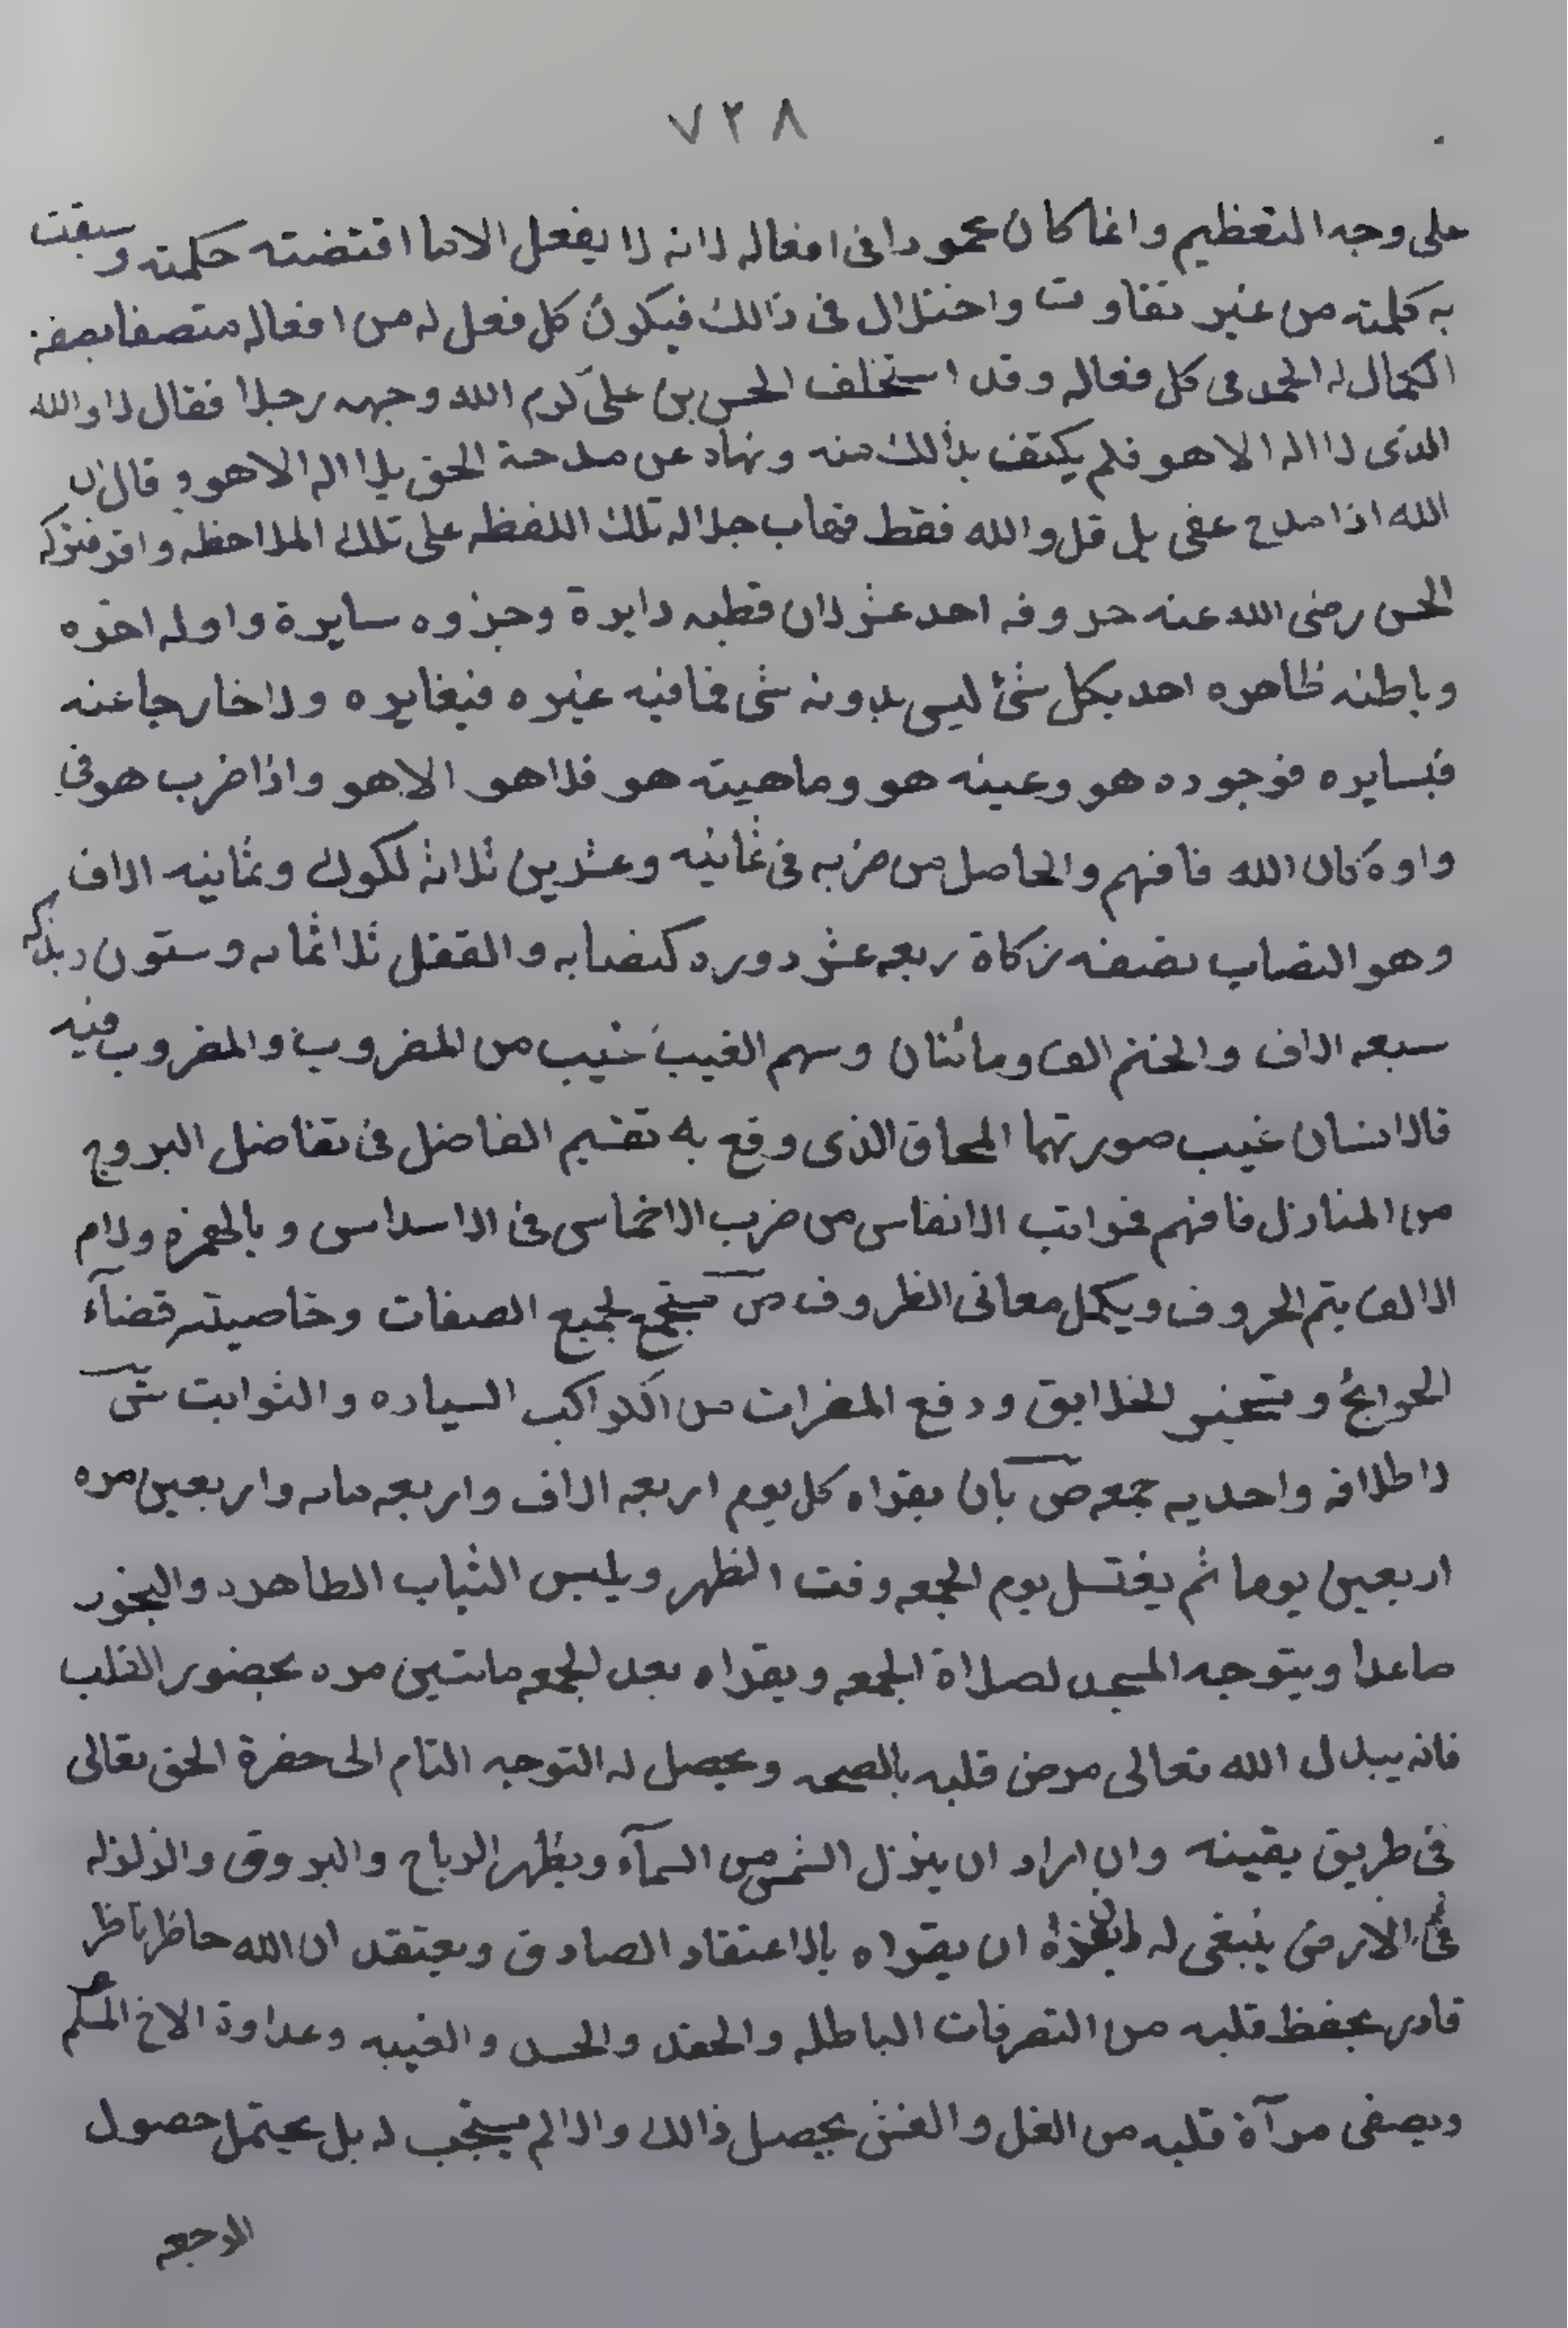 ٧٢٨
على وجه التعظيم وانما كان محمودا فى افعاله لانه لا يفعل الا ما اقتضته حكمته وسبقت
به كلمته من غير تفاوت واختلال فى ذالك فيكون كل فعل له من افعاله متصفا بصفة
الكمال له الحمد فى كل فعاله وقد استخلف الحسن بن على كرم الله وجهه رجلا فقال لا والله
الذى لا اله الا هو فلم يكتف بذالك منه ونهاه عن مدحة الحق بلا اله الا هو و قال
الله اذا مدح عفى بل قل والله فقط فهاب جلاله تلك اللفظه على تلك الملاحظه واقر فتركه
الحسن رضى الله عنه حروفه احد عشر لان قطبه دايرة وجزوه سايرة واوله اخره
وباطنه ظاهره احد بكل شئ ليس بدونه شى فما فيه غيره فيغايره ولا خارجا عنه
فيسايره فوجوده هو وعينه هو وماهيته هو فلا هو الا هو واذا ضرب هو فى
واوه كان الله فافهم والحاصل من ضربه فى ثمانيه وعشرين ثلاثة لكوك وثمانيه الاف
وهو النصاب نصفه زكاة ربعه عشر دوره كنصابه والقفل ثلاثمائه وستون
سبعه الاف والختم الف ومائتان وسهم الغيب غيب من المضروب والمضروب فيه
فالانسان غيب صورتهما المحاق الذى وقع به تقسيم الفاضل فى تفاضل البروج
من المنازل فافهم فواتب الانفاس من ضرب الاخماس فى الاسداس وبالهمزه ولام
الالف يتم الحروف ويكمل معانى الظروف ص مستجمع لجميع الصفات وخاصيته قضآء
الحوايج و للخلايق ودفع المضرات من الكواكب السياره والثوابت ش
لاطلاقه واحديه جمعه ص بان يقراه كل يوم اربعه الاف واربعه مائه واربعين مره
اربعين يوما ثم يغتسل يوم الجمعه وقت الظهر ويلبس الثياب الطاهره والبخور
صاعدا ويتوجه المسجد لصلاة الجمعه ويقراه بعد الجمعه مائتين مره بحضور القلب
فانه يبدل الله تعالى مرض قلبه بالصحه ويحصل له التوجه التام الى حضرة الحق تعالى
فى طريق يقينه وان اراد ان ينزل الشمس من السمآء ويظهر الرياح والبروق والزلزله
فى الارض ينبغى له ان يقراه بالاعتقاد الصادق ويعتقد ان الله حاظر ناظر
قادر بحفظ قلبه من التصرفات الباطله والحقد والحسد والغيبه وعداوة الاخ المسلم
ويصفى مرآة قلبه من الغل والغش يحصل ذالك والا لم يستجب له بل يحتمل حصول
الرجعه